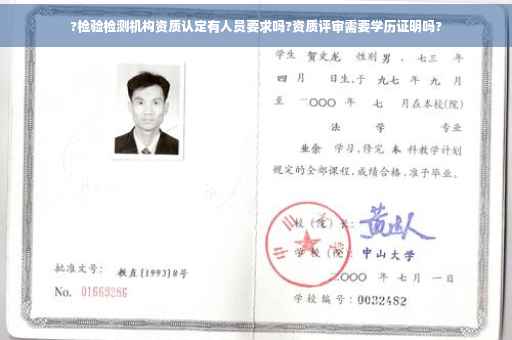 ?检验检测机构资质认定有人员要求吗?资质评审需要学历证明吗?
学生 贺文龙 性别 男，七三 年
四 月 日生，于 九七 年 九 月
至 二〇〇〇 年 七 月在本校(院)
法 学 专业
业余 学习，修完 本 科教学计划
规定的全部课程，成绩合格，准予毕业。
校（院）长：
学 校（院）：中山大学
二〇〇〇 年 七 月 一 日
学校编号：0032482
批准文号：教直[1993]8号
No. 01669286